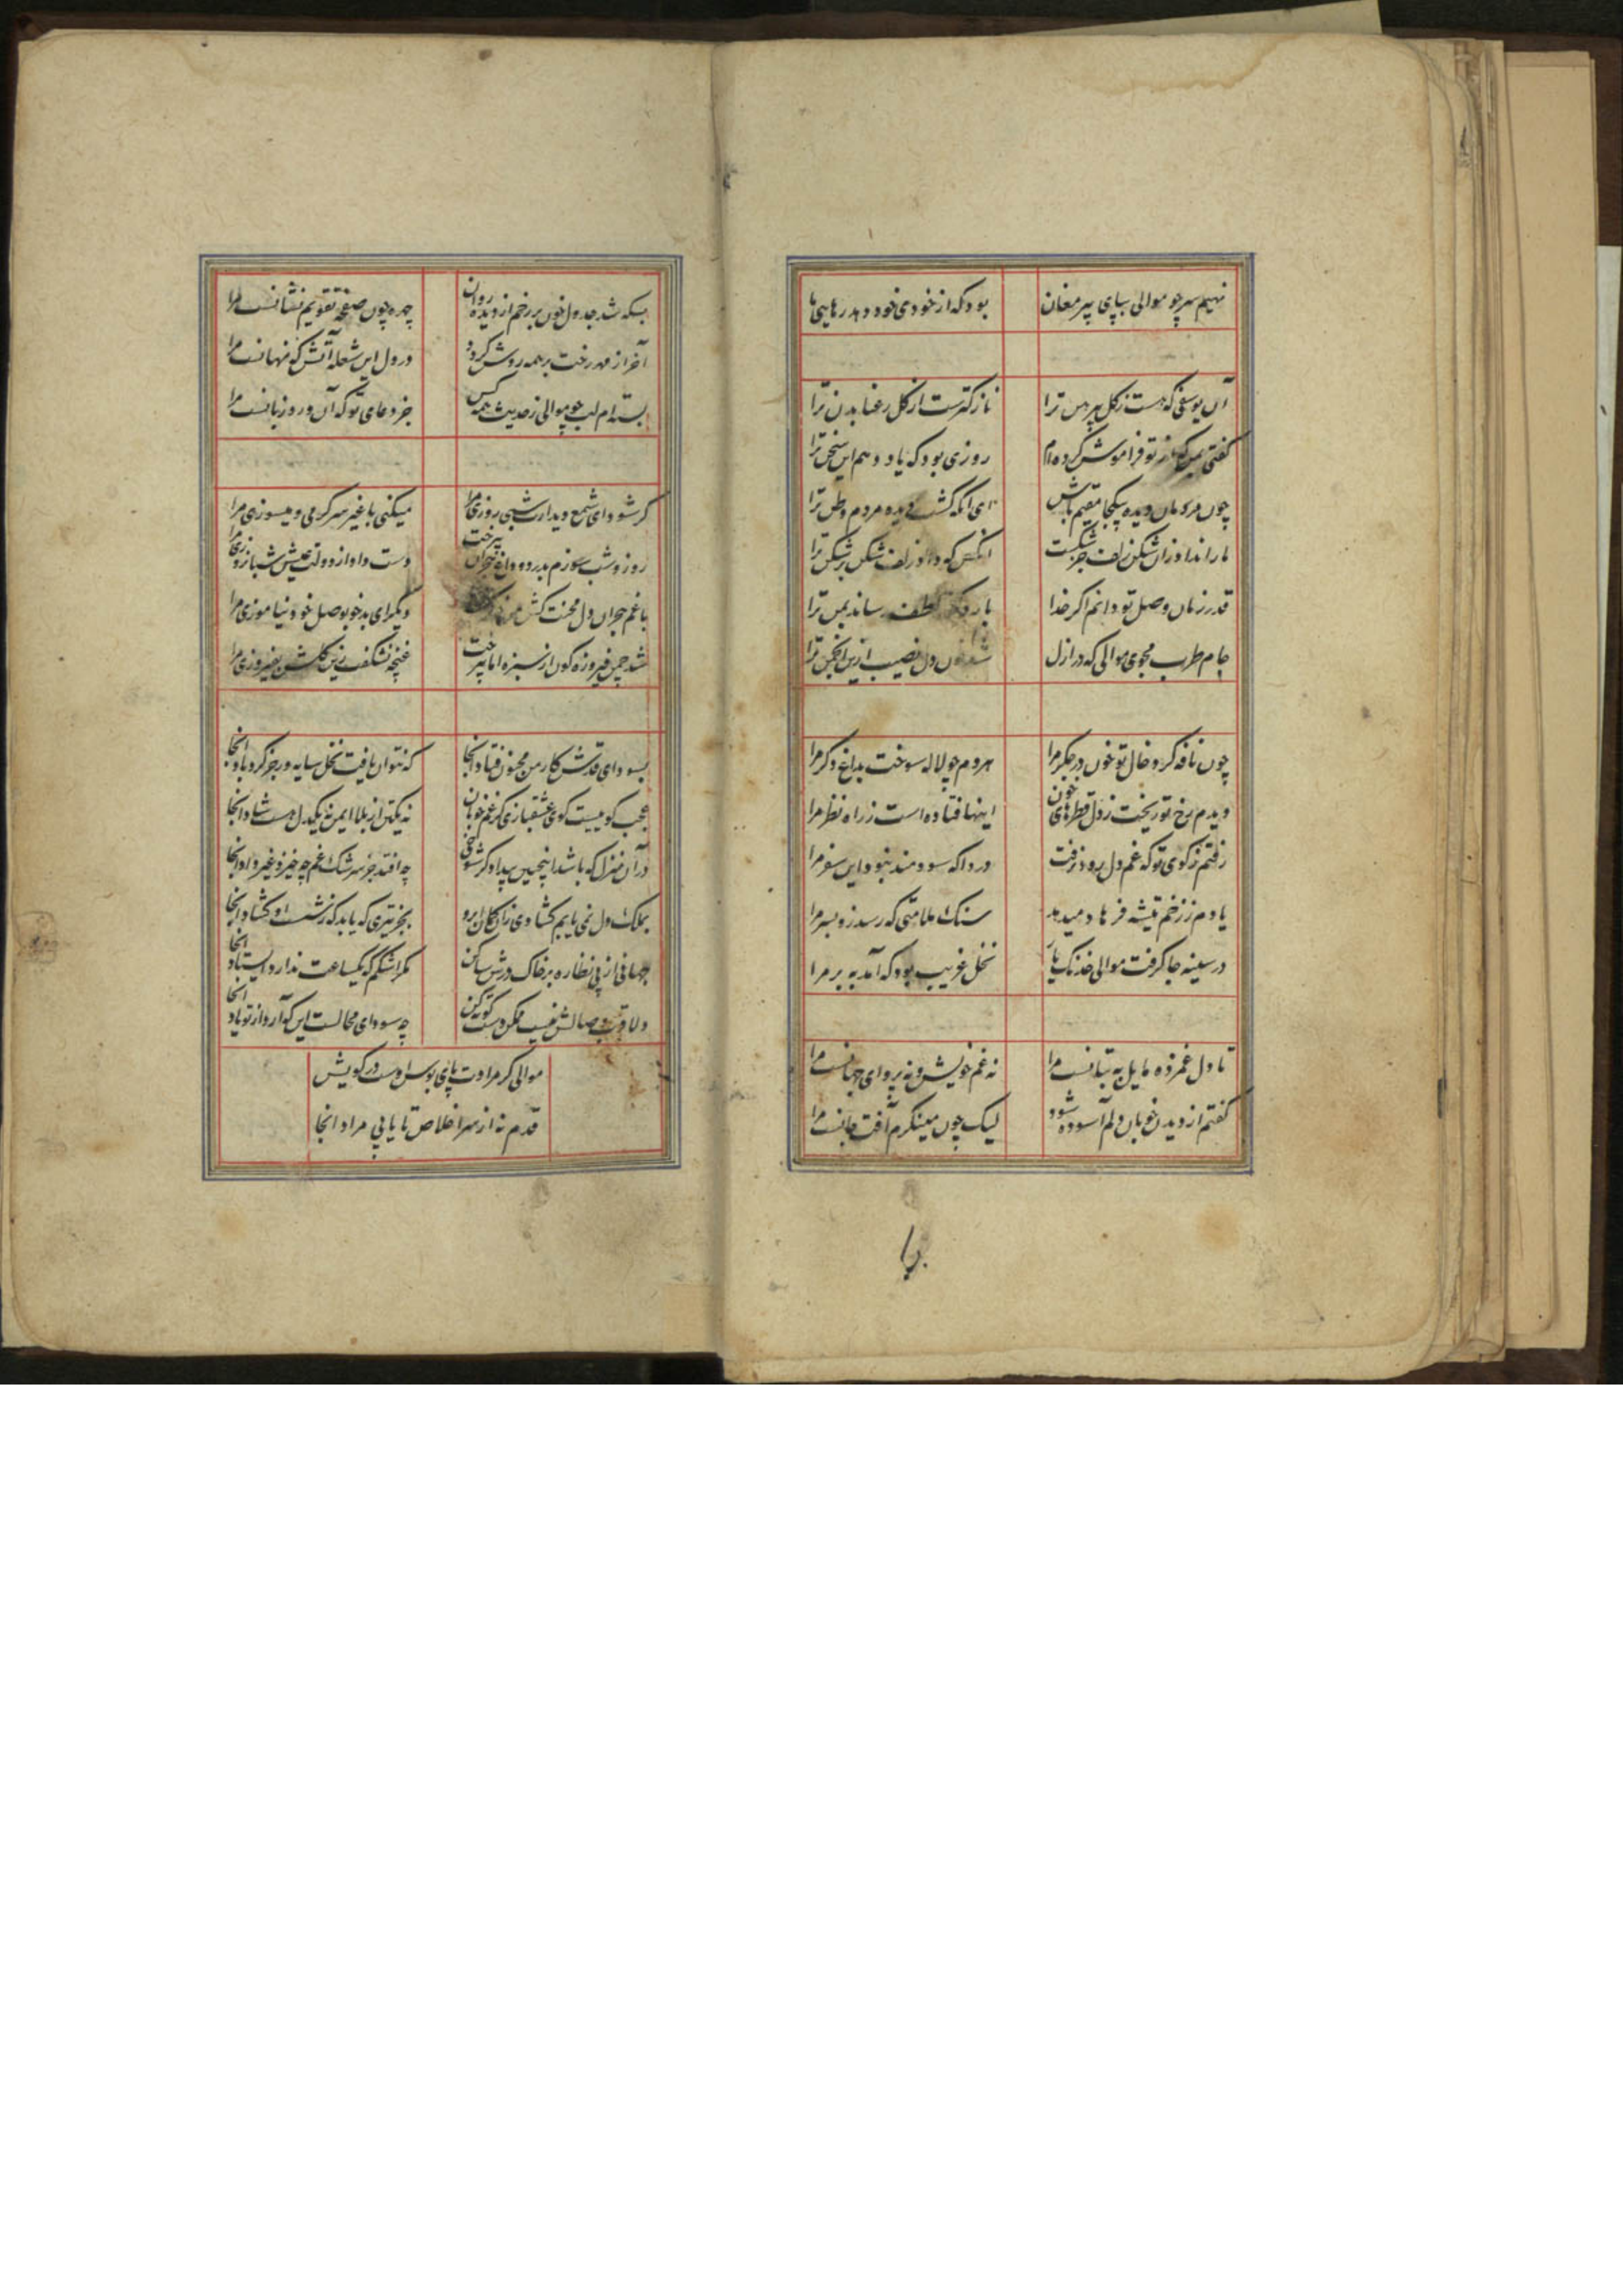 نهیم سر چو موالی بپای پیر مغان بود که از خودی خود دهد رهایی ما
آن یوسفی که هست ز گل پیرهن ترا نازکترست از گل رعنا بدن ترا
گفتی که از تو فراموش کرده‌ام روزی بود که یاد دهم این سخن ترا
چون مردمان دیده بیکجا مقیم باش ای آنکه گشت دیده مردم وطن ترا
ما را نداد زان شکن زلف جز شکست آنکس که داد زلف شکن بر شکن ترا
قدر زمان وصل تو دانم اگر خدا بار دگر بلطف رساند بمن ترا
جام طرب مجوی موالی که در ازل شد خون دل نصیب ازین انجمن ترا
چون نافه کرد خال تو خون در جگر مرا هر دم چو لاله سوخت بداغ دگر مرا
دیدم رخ تو ریخت ز دل قطرهای خون اینها فتاده است ز راه نظر مرا
رفتم ز کوی تو که غم دل رود نرفت دردا که سودمند نبود این سفر مرا
یادم ز زخم تیشه فرهاد میدهد سنک ملامتی که رسد زو بسر مرا
در سینه جا گرفت موالی خدنک یار نخل غریب بود که آمد به بر مرا
تا دل غمزده مایل به بتانست مرا نه غم خویش و نه پروای جهانست مرا
گفتم از دیدن خوبان دلم آسوده شود لیک چون مینگرم آفت جانست مرا
بسکه شد جدول خون بر رخم از دیده روان چهره چون صفحه تقویم نشانست مرا
آخر از مهر رخت بر همه روشن گردد در دل این شعله آتش که نهانست مرا
بسته‌ام لب چو موالی ز حدیث همه کس جز دعای تو که آن ورد زبانست مرا
گر شود ای شمع دیدارت شبی روزی مرا میکنی با غیر سرگرمی و میسوزی مرا
روز و شب سوزم بدرد و داغ هجران دست داد از دولت عیش شبانروزی مرا
با غم هجران دل محنت کش دیگر ای بدخو بوصل خود نیاموزی مرا
شد چمن فیروزه گون از سبزه اما غنچه نشکفت زین گلشن بفیروزی مرا
بسودای قدش کار من مجنون فتاد آنجا که نتوان یافت نخل سایه‌ور جز گردباد آنجا
عجب کوییست کوی عشقبازی کز غم خوبان نه یکتن از بلا ایمن نه یکدل هست شاد آنجا
در آن منزل که باشد اینچنین بیدادگر شوخی چه افتد جز سرشک غم چه خیزد غیر داد آنجا
بملک دل نمی یابم گشادی زان کمان ابرو بجز تیری که یابد که ز شست او گشاد آنجا
جهانی از پی نظاره بر خاک درش ساکن مگر اشکم که یکساعت ندارد ایستاد آنجا
دلا قرب وصالش نیست ممکن چه سودای محالست این که آرد از تو یاد آنجا
موالی گر مرادت پای بوس اوست در کویش
قدم نه از سر اخلاص تا یابی مراد آنجا